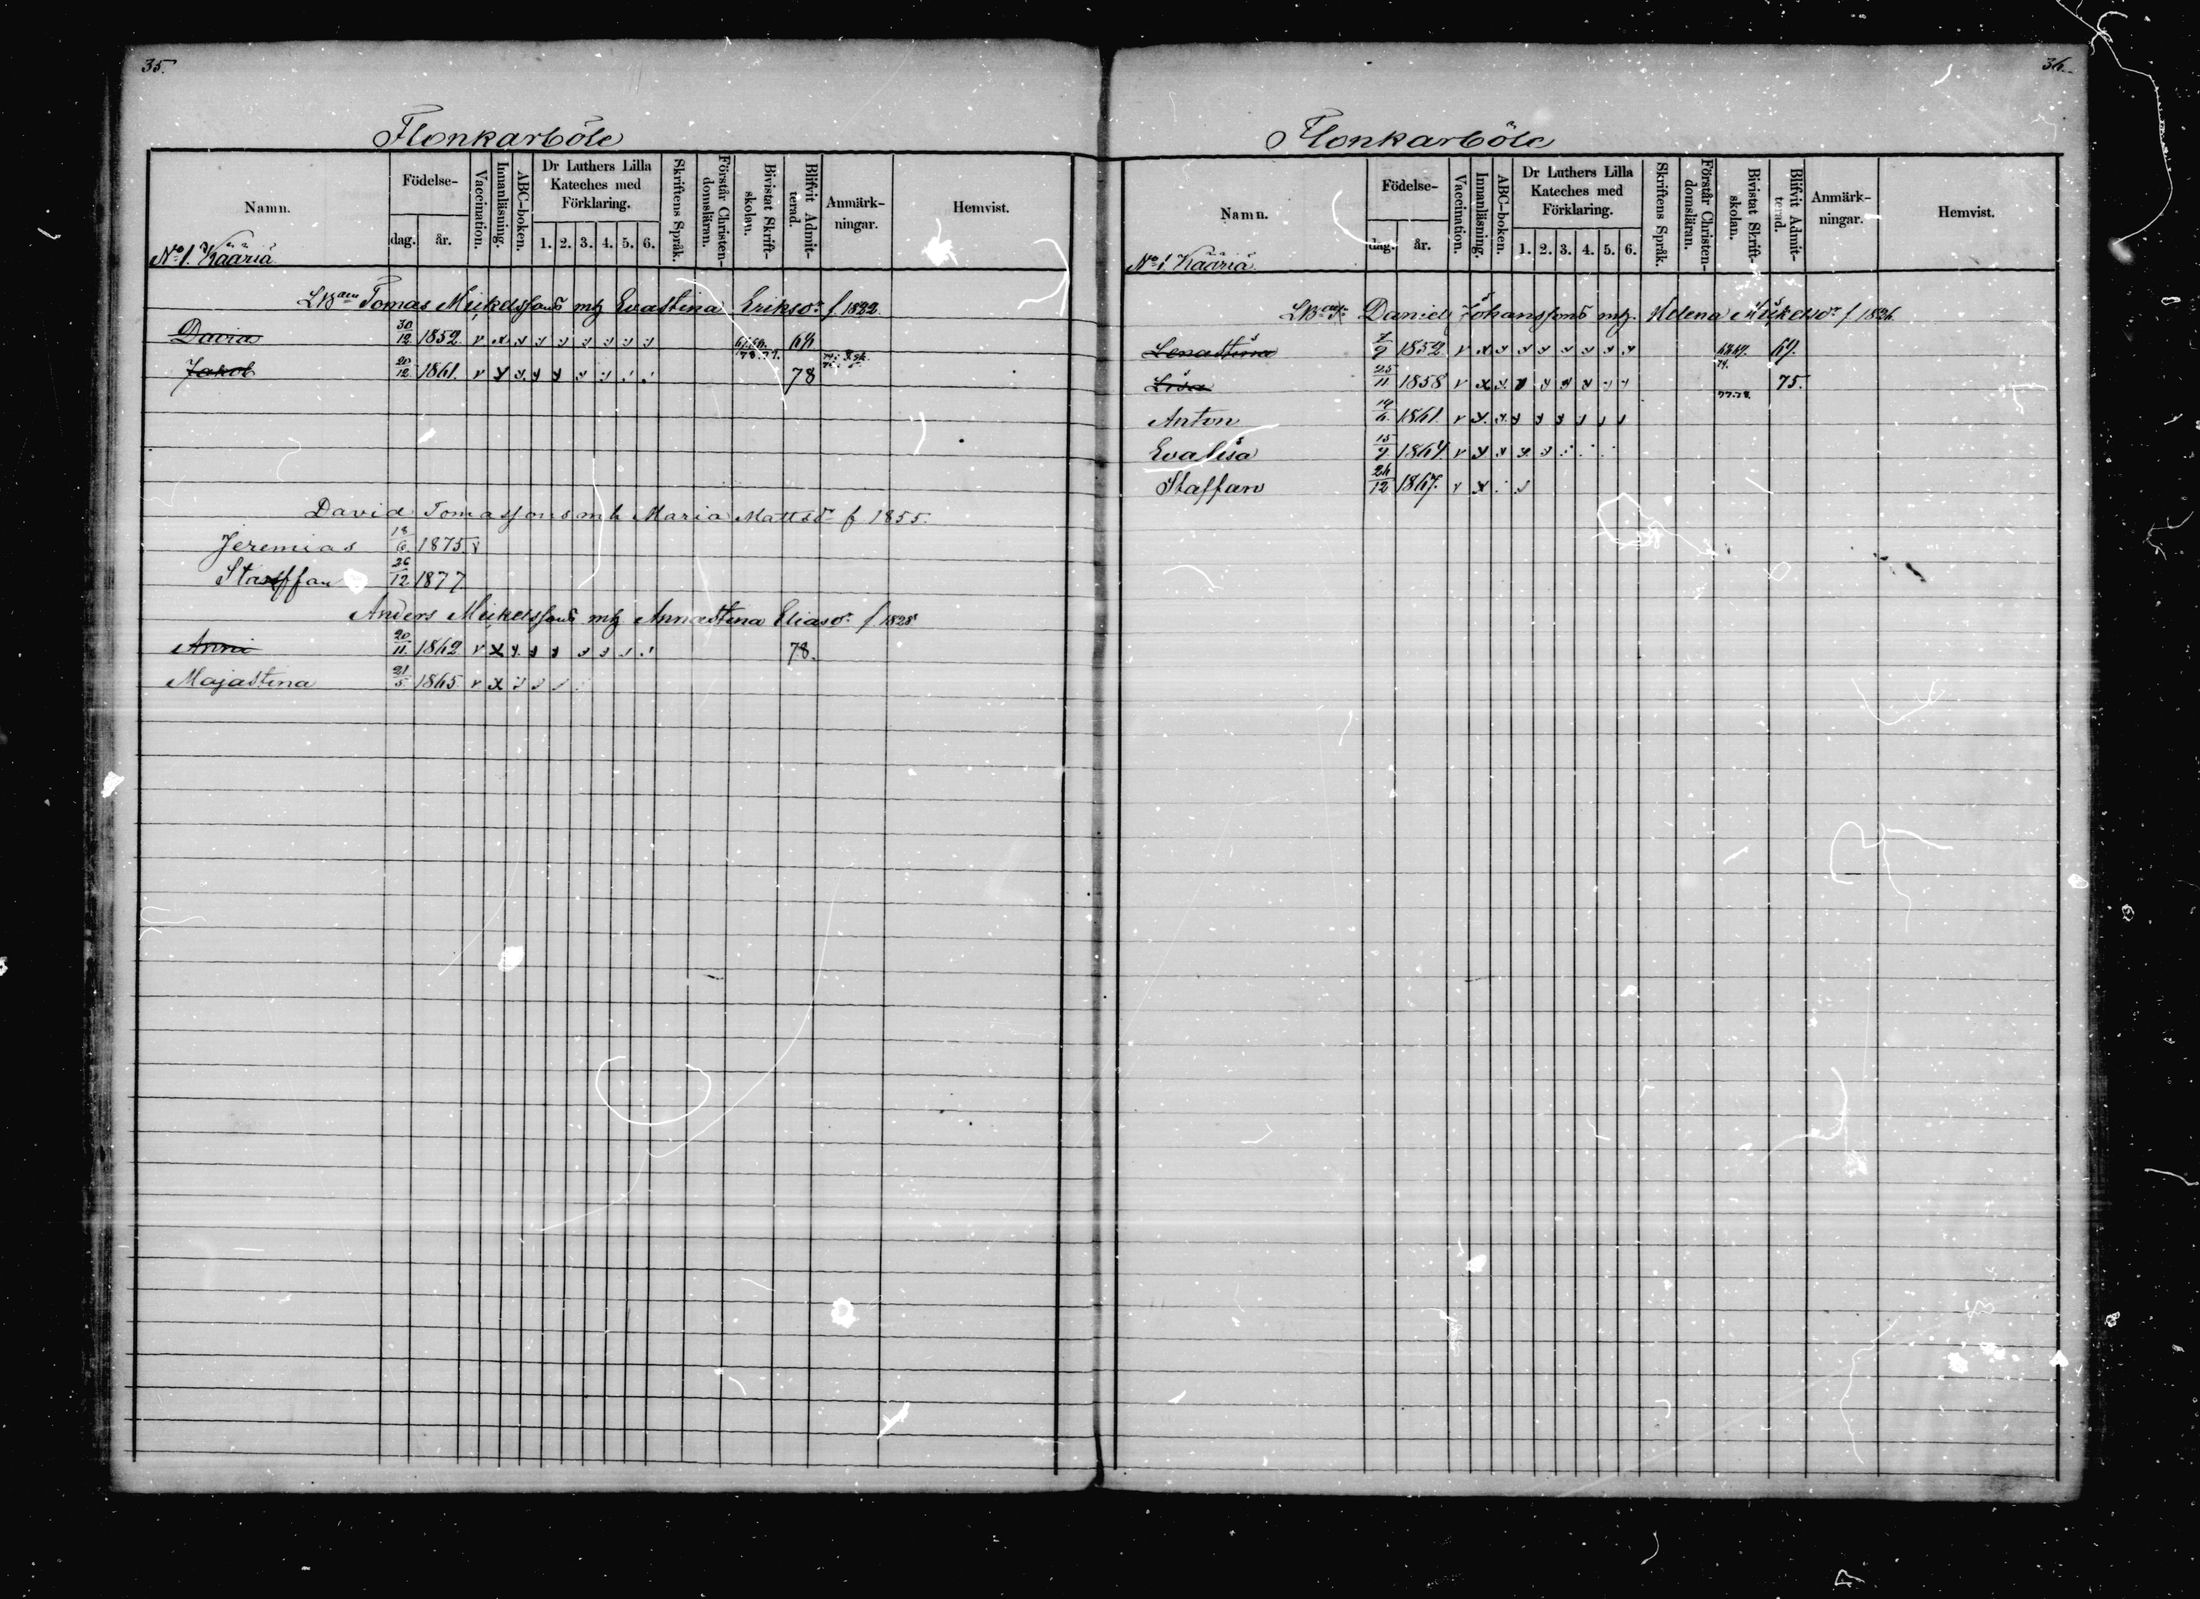 35.
Flonkarböle
Namn.
Födelse-
dag. år.
Vaccination.
Innanläsning.
ABC-boken.
Dr Luthers Lilla
Kateches med
Förklaring.
1. 2. 3. 4. 5. 6.
Skriftens Språk.
Förstår Christen-
domsläran.
Bivistat Skrift-
skolan.
Blifvit Admit-
terad.
Anmärk-
ningar.
Hemvist.
No 1. Kääriä
Tomas Mickelssons mh Evastina Eriksdr f. 1822.
David 30/12 1852. 68
Jakob 20/12 1861. 78.77. 78
David Tomassons mh Maria Mattsdr f 1855.
Jeremias 18/6 1875
Staffan 26/12 1877
Anders Mickelssons mh Annastina Eliasdr f. 1828
Anna 20/11 1862 78.
Majastina 21/5 1865.
36.
Flonkarböle
Namn.
Födelse-
dag. år.
Vaccination.
Innanläsning.
ABC-boken.
Dr Luthers Lilla
Kateches med
Förklaring.
1. 2. 3. 4. 5. 6.
Skriftens Språk.
Förstår Christen-
domsläran.
Bivistat Skrift-
skolan.
Blifvit Admit-
terad.
Anmärk-
ningar.
Hemvist.
No 1. Kääriä
Daniel Johanssons mh. Helena Mickelsdr f 1826
Lenastina 7/9 1852 69.
Lisa 25/11 1858 74. 75.
Anton 1861. 77.78.
Evalisa 15/9 1864
Staffan 26/12 1867.